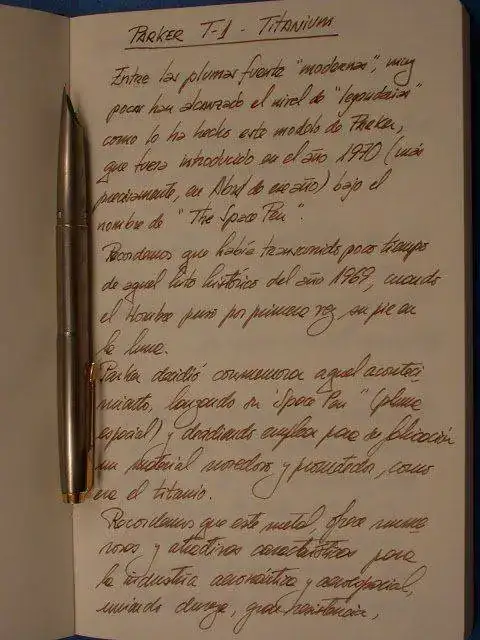 PARKER T-1 - TITANIUM
Entre las plumas fuente "modernas", muy
pocas han alcanzado el nivel de "legendarias"
como lo ha hecho este modelo de Parker,
que fuera introducido en el año 1970 (más
precisamente, en Abril de ese año) bajo el
nombre de "The Space Pen".
Recordemos que había transcurrido poco tiempo
de aquel hito histórico del año 1969, cuando
el Hombre puso por primera vez su pie en
la luna.
Parker decidió conmemorar aquel aconteci-
miento, lanzando su "Space Pen" (pluma
espacial) y decidiendo emplear para su fabricación
un material novedoso y prometedor, como
era el titanio.
Recordemos que este metal, ofrece nume-
rosas y atractivas características para
la industria aeronáutica y aeroespacial,
uniendo dureza, gran resistencia,